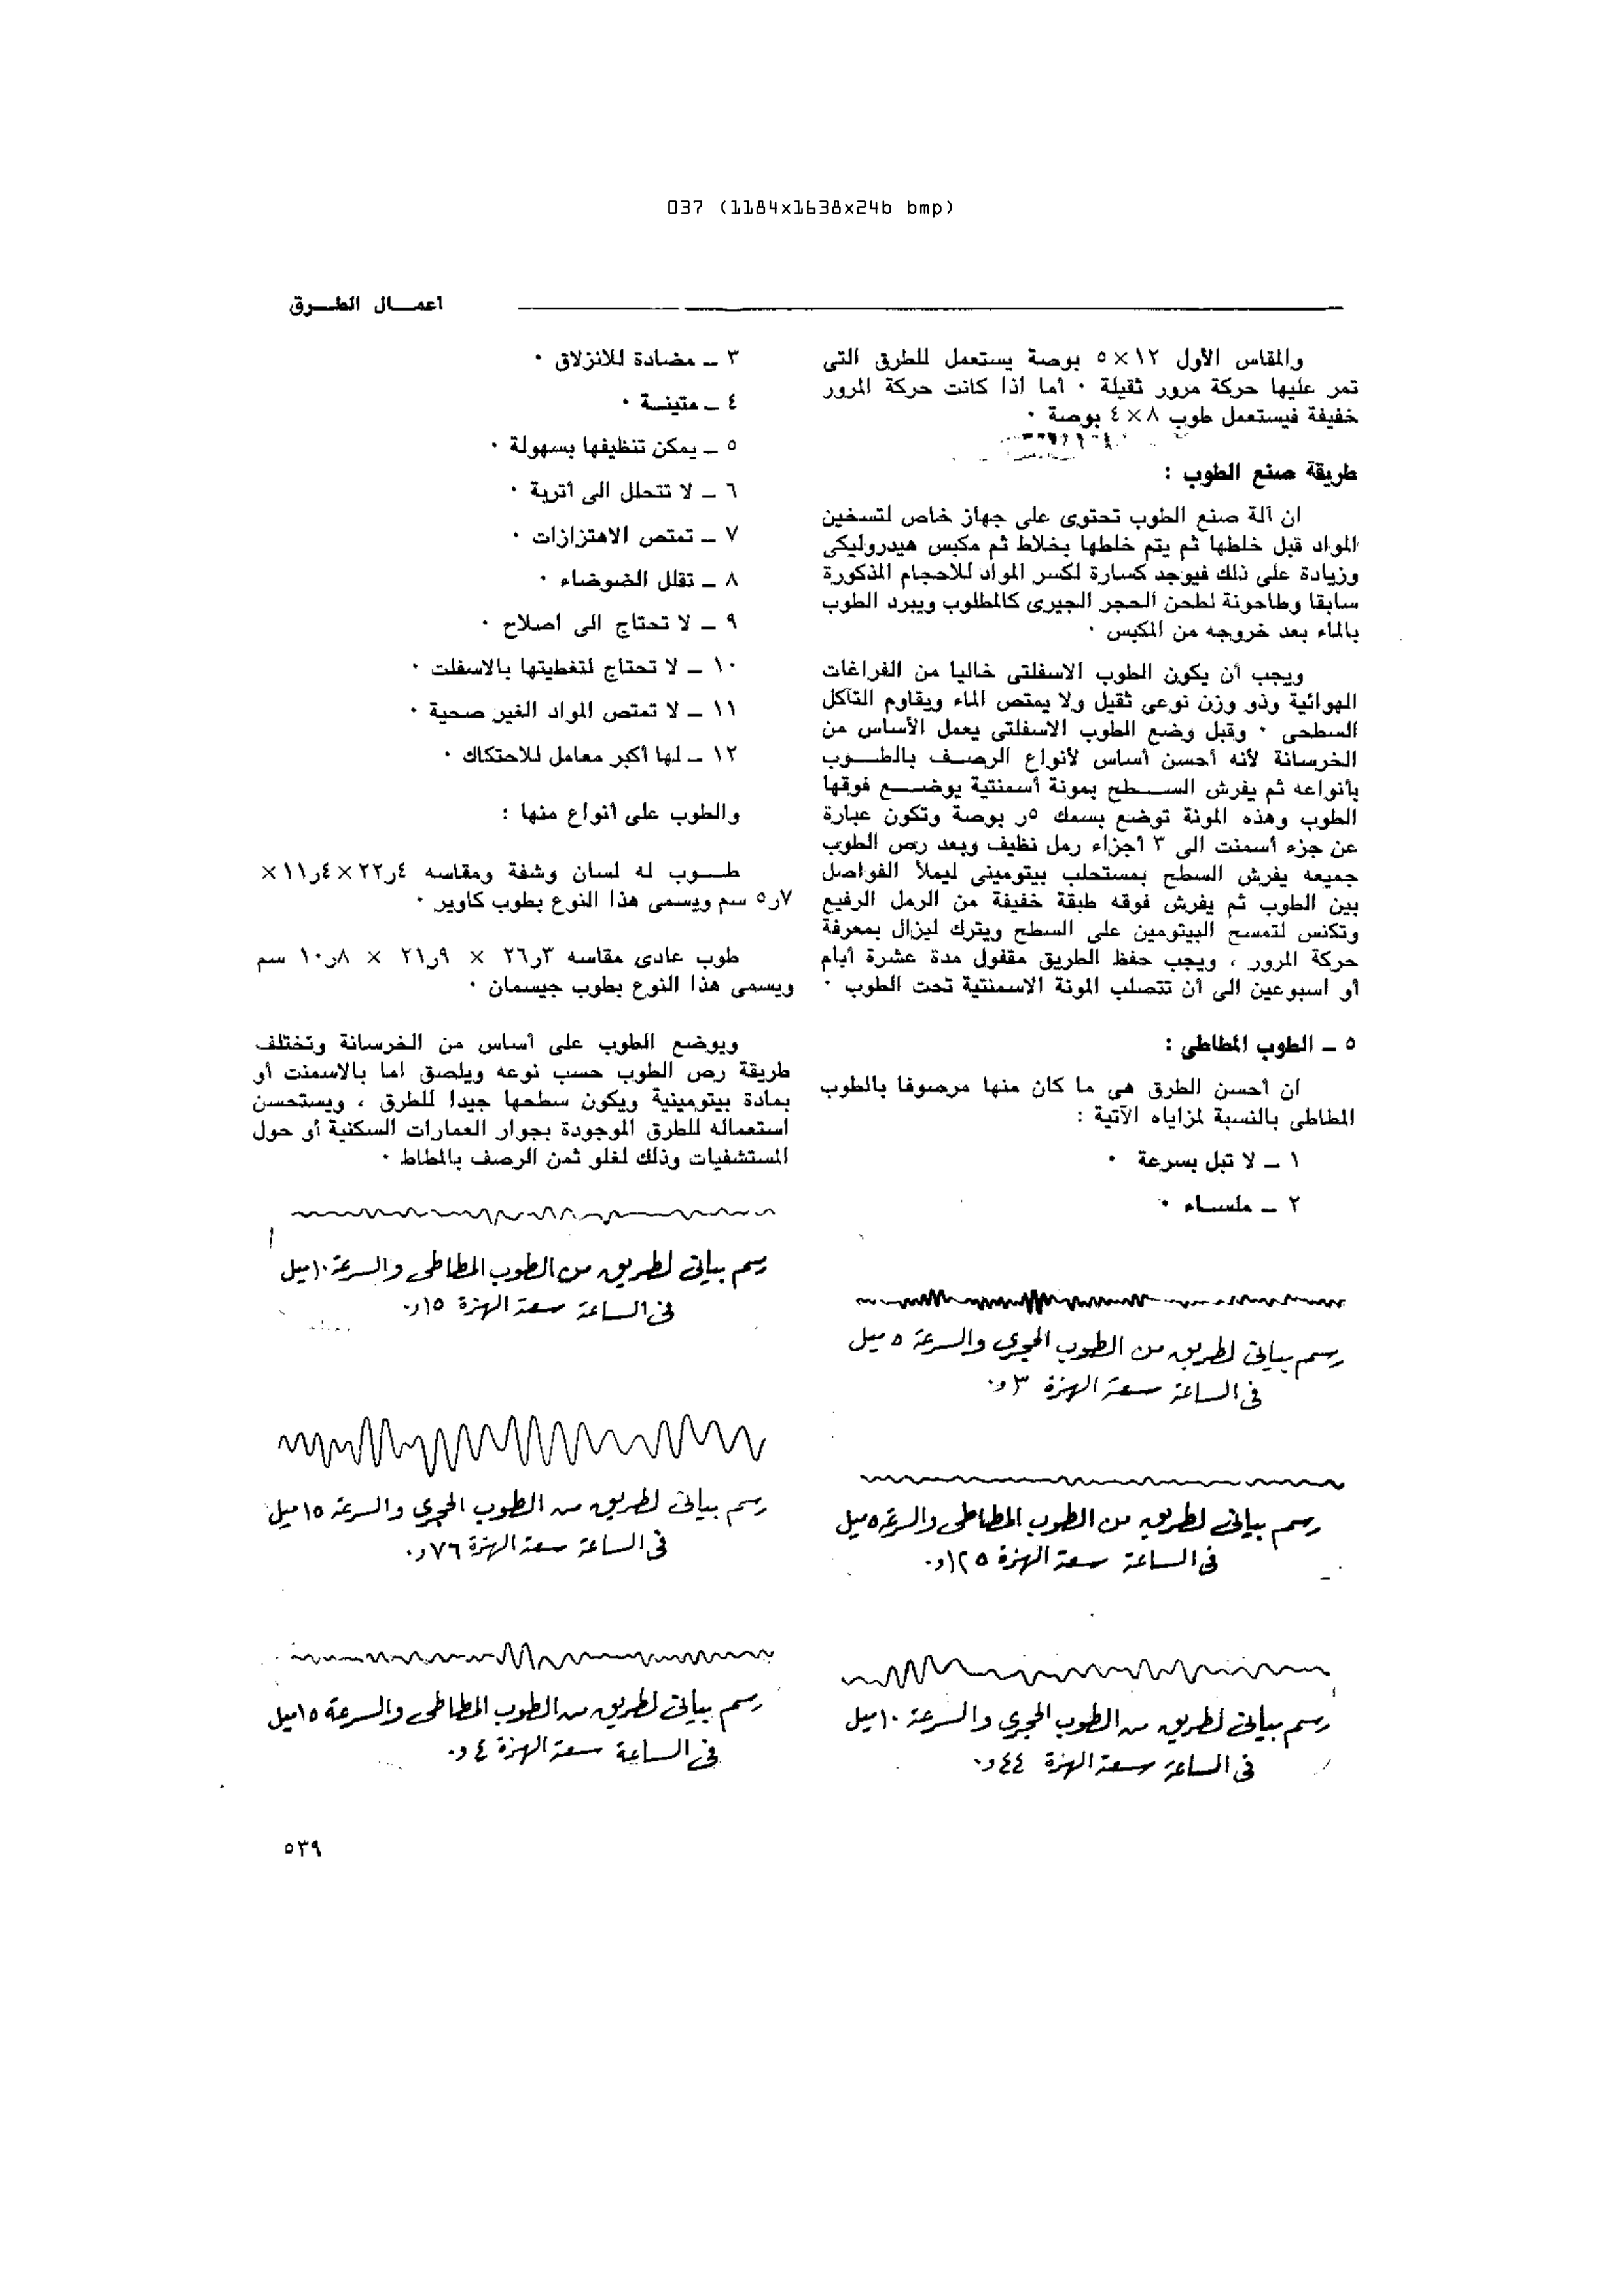 037 (1184x1638x24b bmp)
اعمـــال الطـــرق
والمقاس الأول ١٢×٥ بوصة يستعمل للطرق التى
تمر عليها حركة مرور ثقيلة ٠ أما اذا كانت حركة المرور
خفيفة فيستعمل طوب ٨×٤ بوصة ٠
طريقة صنع الطوب :
ان آلة صنع الطوب تحتوى على جهاز خاص لتسخين
المواد قبل خلطها ثم يتم خلطها بخلاط ثم مكبس هيدروليكى
وزيادة على ذلك فيوجد كسارة لكسر المواد للاحجام المذكورة
سابقا وطاحونة لطحن الحجر الجيرى كالمطلوب ويبرد الطوب
بالماء بعد خروجه من المكبس ٠
ويجب أن يكون الطوب الاسفلتى خاليا من الفراغات
الهوائية وذو وزن نوعى ثقيل ولا يمتص الماء ويقاوم التآكل
السطحى ٠ وقبل وضع الطوب الاسفلتى يعمل الأساس من
الخرسانة لأنه أحسن أساس لأنواع الرصـف بالطـــوب
بأنواعه ثم يفرش الســـطح بمونة أسمنتية يوضـــع فوقها
الطوب وهذه المونة توضع بسمك ٥ر بوصة وتكون عبارة
عن جزء أسمنت الى ٣ أجزاء رمل نظيف وبعد رص الطوب
جميعه يفرش السطح بمستحلب بيتومينى ليملأ الفواصل
بين الطوب ثم يفرش فوقه طبقة خفيفة من الرمل الرفيع
وتكنس لتمسح البيتومين على السطح ويترك ليزال بمعرفة
حركة المرور ، ويجب حفظ الطريق مقفول مدة عشرة أيام
أو اسبوعين الى أن تتصلب المونة الاسمنتية تحت الطوب ٠
٥ ــ الطوب المطاطى :
ان أحسن الطرق هى ما كان منها مرصوفا بالطوب
المطاطى بالنسبة لمزاياه الآتية :
١ ــ لا تبل بسرعة ٠
٢ ــ ملســاء ٠
رسم بيانى لطريق من الطوب الحجرى والسرعة ٥ ميل
فى الساعة سعة الهزة ٣و٠
رسم بيانى لطريق من الطوب المطاطى والسرعة ٥ ميل
فى الساعة سعة الهزة ١٢٥و٠
رسم بيانى لطريق من الطوب الحجرى والسرعة ١٠ ميل
فى الساعة سعة الهزة ٤٤و٠
٣ ــ مضادة للانزلاق ٠
٤ ــ متينــة ٠
٥ ــ يمكن تنظيفها بسهولة ٠
٦ ــ لا تتحلل الى أتربة ٠
٧ ــ تمتص الاهتزازات ٠
٨ ــ تقلل الضوضاء ٠
٩ ــ لا تحتاج الى اصلاح ٠
١٠ ــ لا تحتاج لتغطيتها بالاسفلت ٠
١١ ــ لا تمتص المواد الغير صحية ٠
١٢ ــ لها أكبر معامل للاحتكاك ٠
والطوب على أنواع منها :
طـــوب له لسان وشفة ومقاسه ٤ر٢٢×٤ر١١×
٧ر٥ سم ويسمى هذا النوع بطوب كاوير ٠
طوب عادى مقاسه ٣ر٢٦ × ٩ر٢١ × ٨ر١٠ سم
ويسمى هذا النوع بطوب جيسمان ٠
ويوضع الطوب على أساس من الخرسانة وتختلف
طريقة رص الطوب حسب نوعه ويلصق اما بالاسمنت أو
بمادة بيتومينية ويكون سطحها جيدا للطرق ، ويستحسن
استعماله للطرق الموجودة بجوار العمارات السكنية أو حول
المستشفيات وذلك لغلو ثمن الرصف بالمطاط ٠
رسم بيانى لطريق من الطوب المطاطى والسرعة ١٠ ميل
فى الساعة سعة الهزة ١٥و٠
رسم بيانى لطريق من الطوب الحجرى والسرعة ١٥ ميل
فى الساعة سعة الهزة ٧٦و٠
رسم بيانى لطريق من الطوب المطاطى والسرعة ١٥ ميل
فى الساعة سعة الهزة ٤و٠
٥٣٩